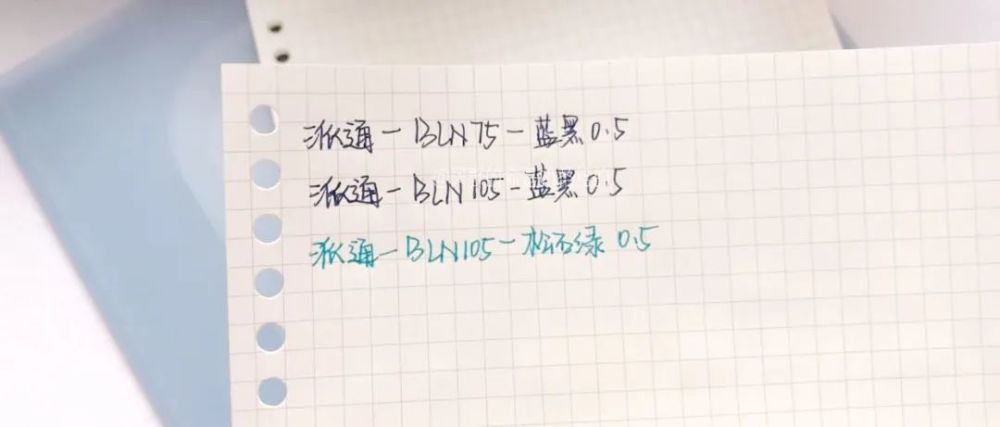 派通-BLN75-蓝黑0.5
派通-BLN105-蓝黑0.5
派通-BLN105-松石绿0.5